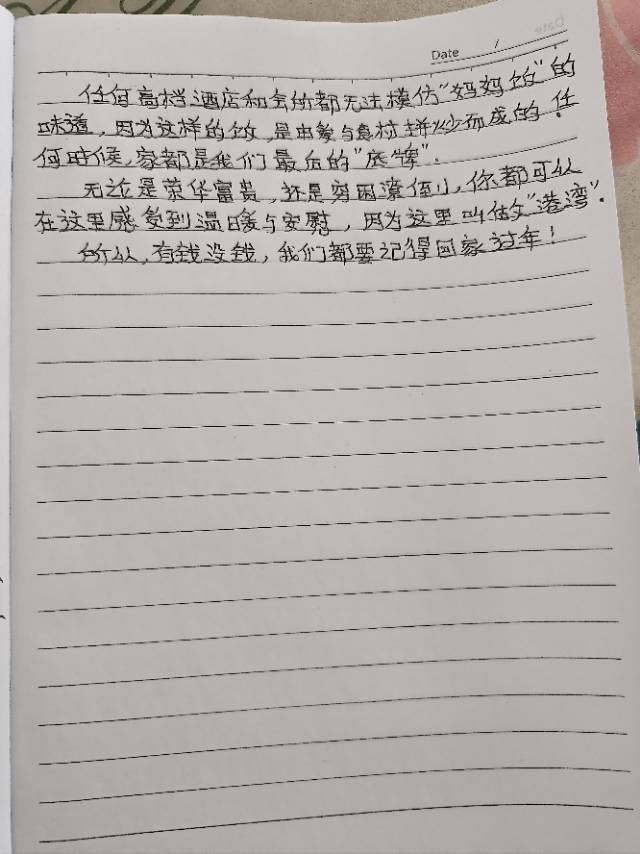 Date /
任何高档酒店和会所都无法模仿“妈妈饭”的
味道，因为这样的饭，是由爱与食材拌炒而成的．任
何时候，家都是我们最后的“底牌”．
无论是荣华富贵，还是穷困潦倒，你都可以
在这里感受到温暖与安慰，因为这里叫做“港湾”．
所以，有钱没钱，我们都要记得回家过年！